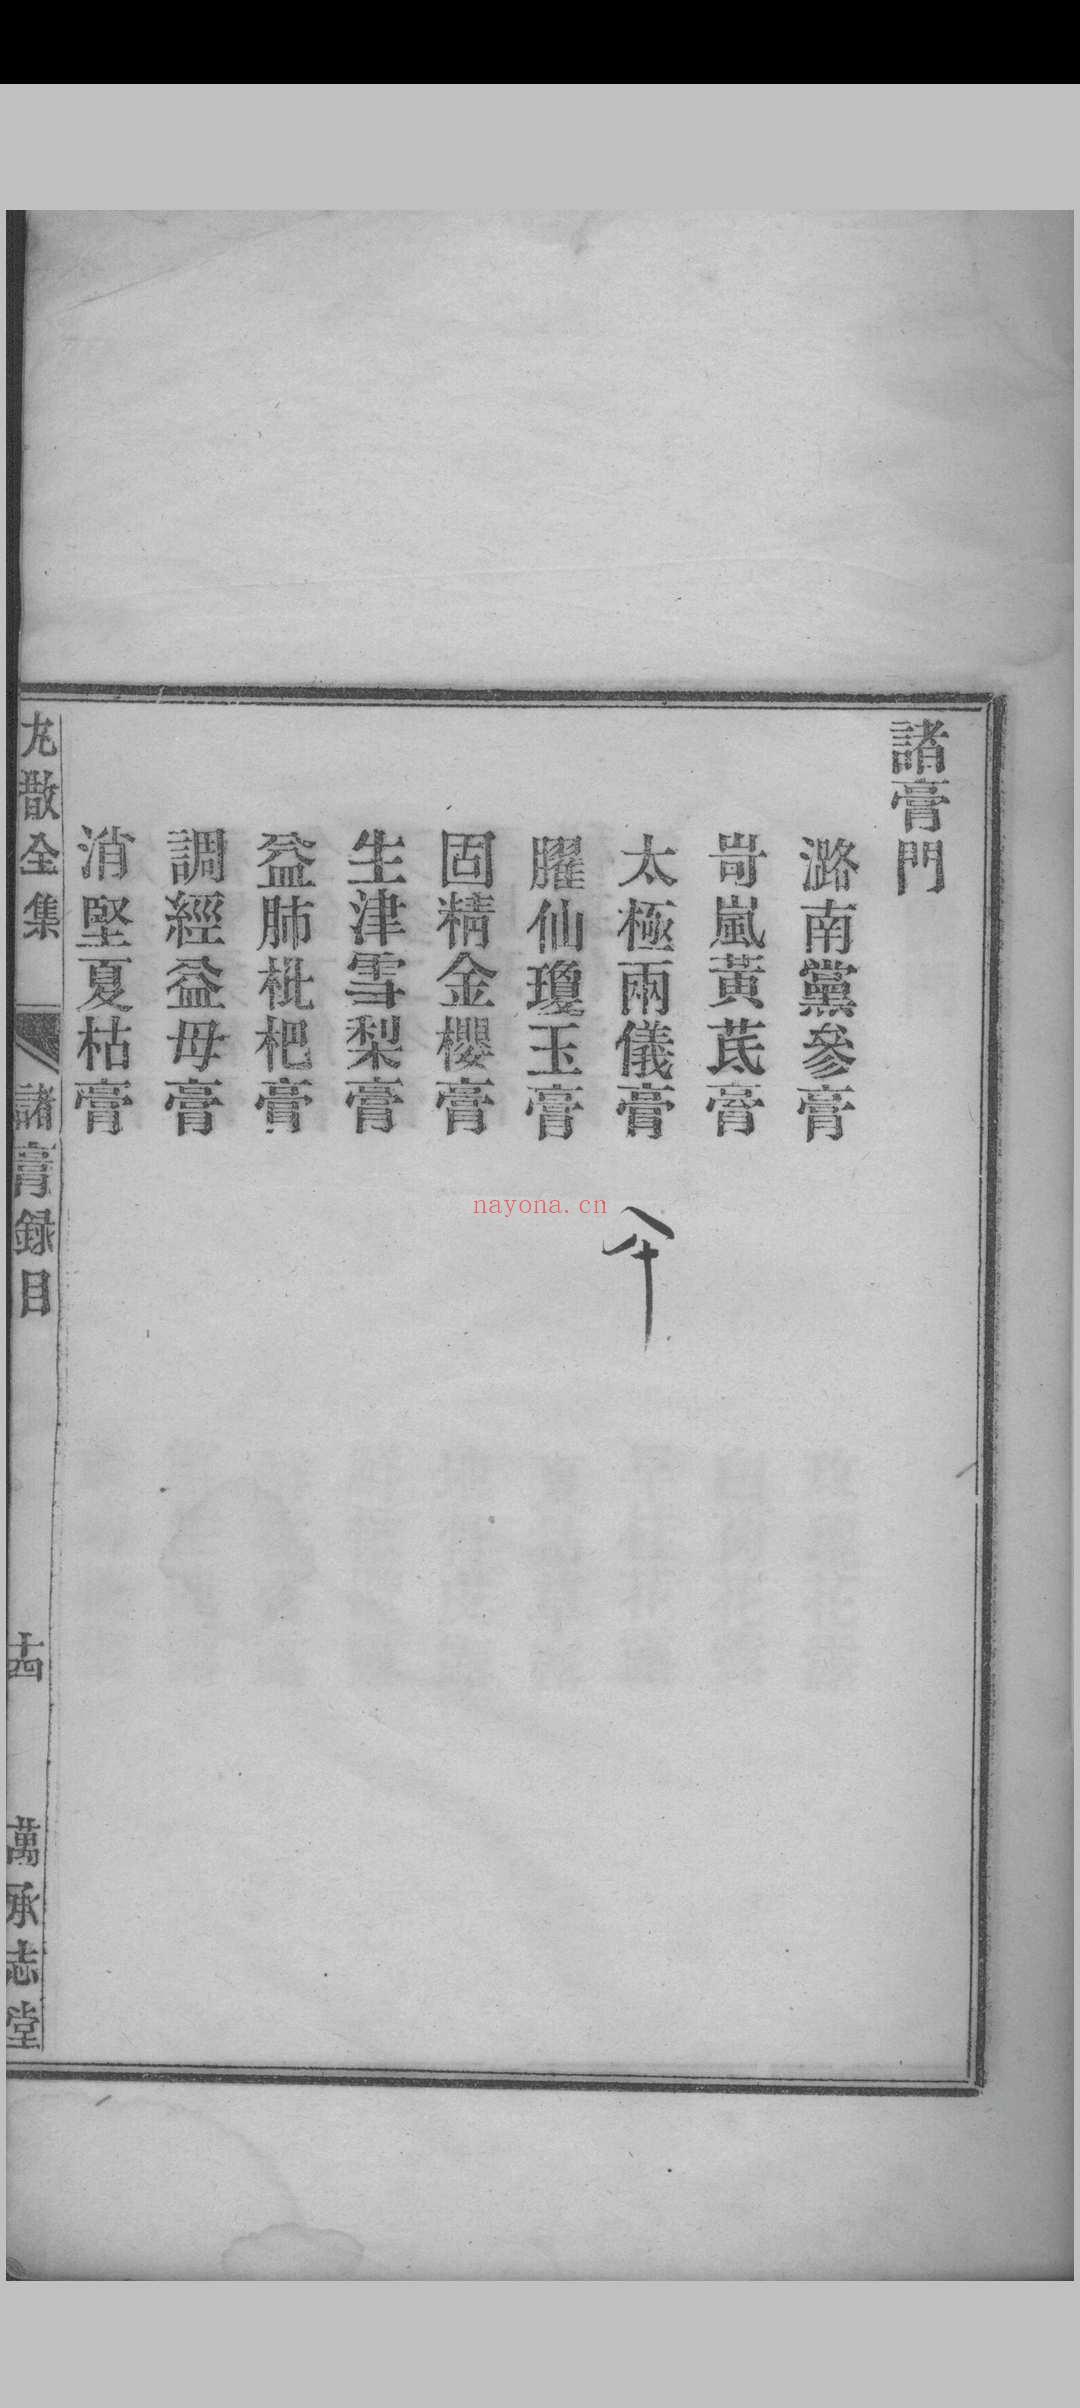 諸膏門
潞南黨參膏
岢嵐黃芪膏
太極兩儀膏
臞仙瓊玉膏
固精金櫻膏
生津雪梨膏
益肺枇杷膏
調經益母膏
消堅夏枯膏
丸散全集
諸膏録目
十四
萬承志堂
nayona.cn